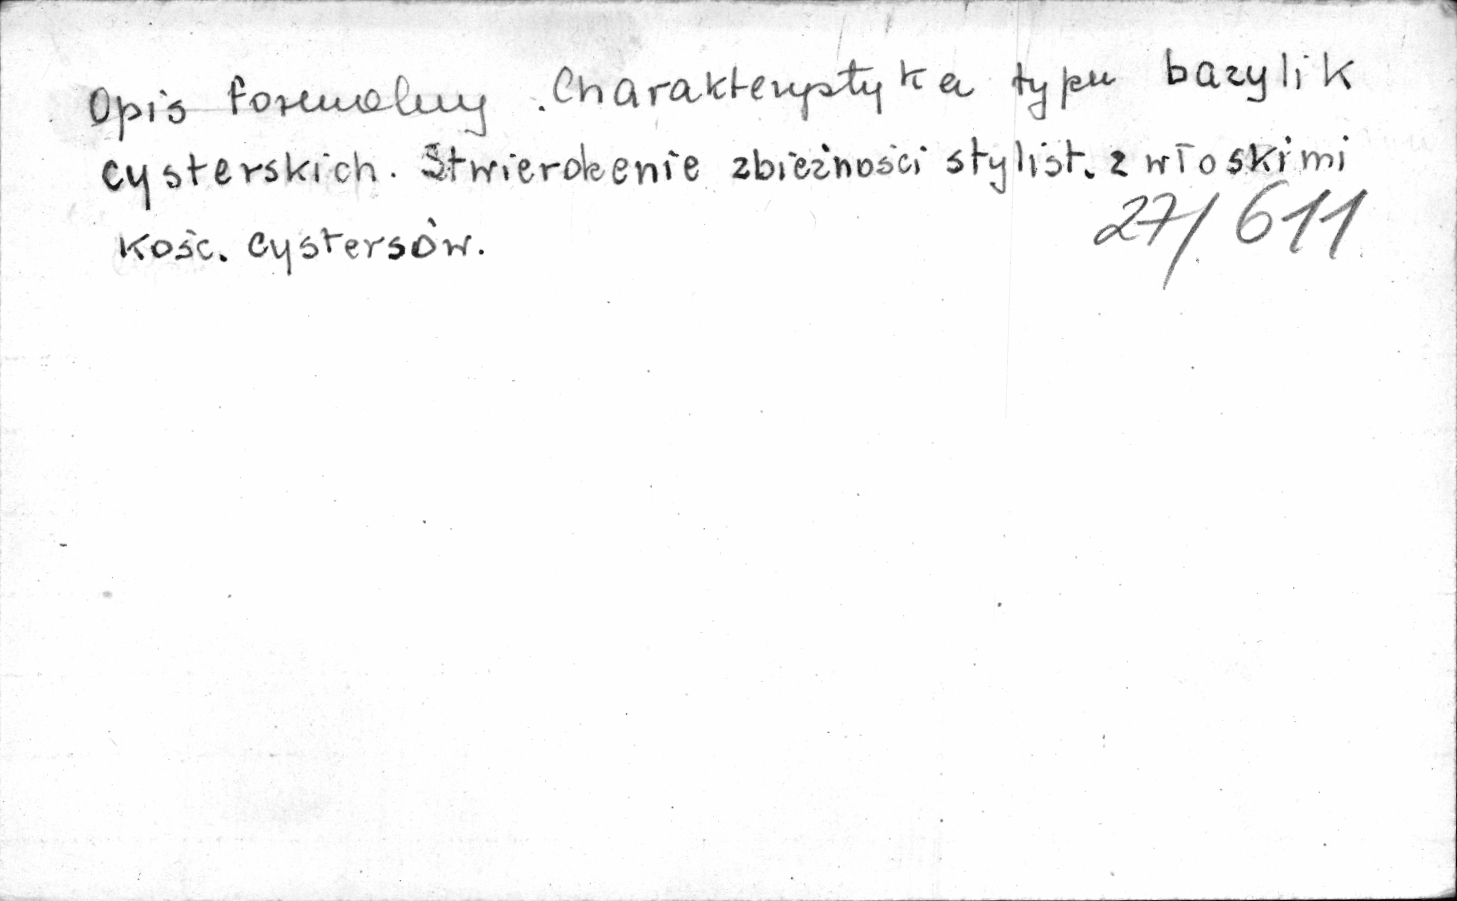 Opis formalny. Charakterystyka typu bazylik
cysterskich. Stwierdzenie zbieżności stylist. z włoskimi
kośc. cystersów.
27/611